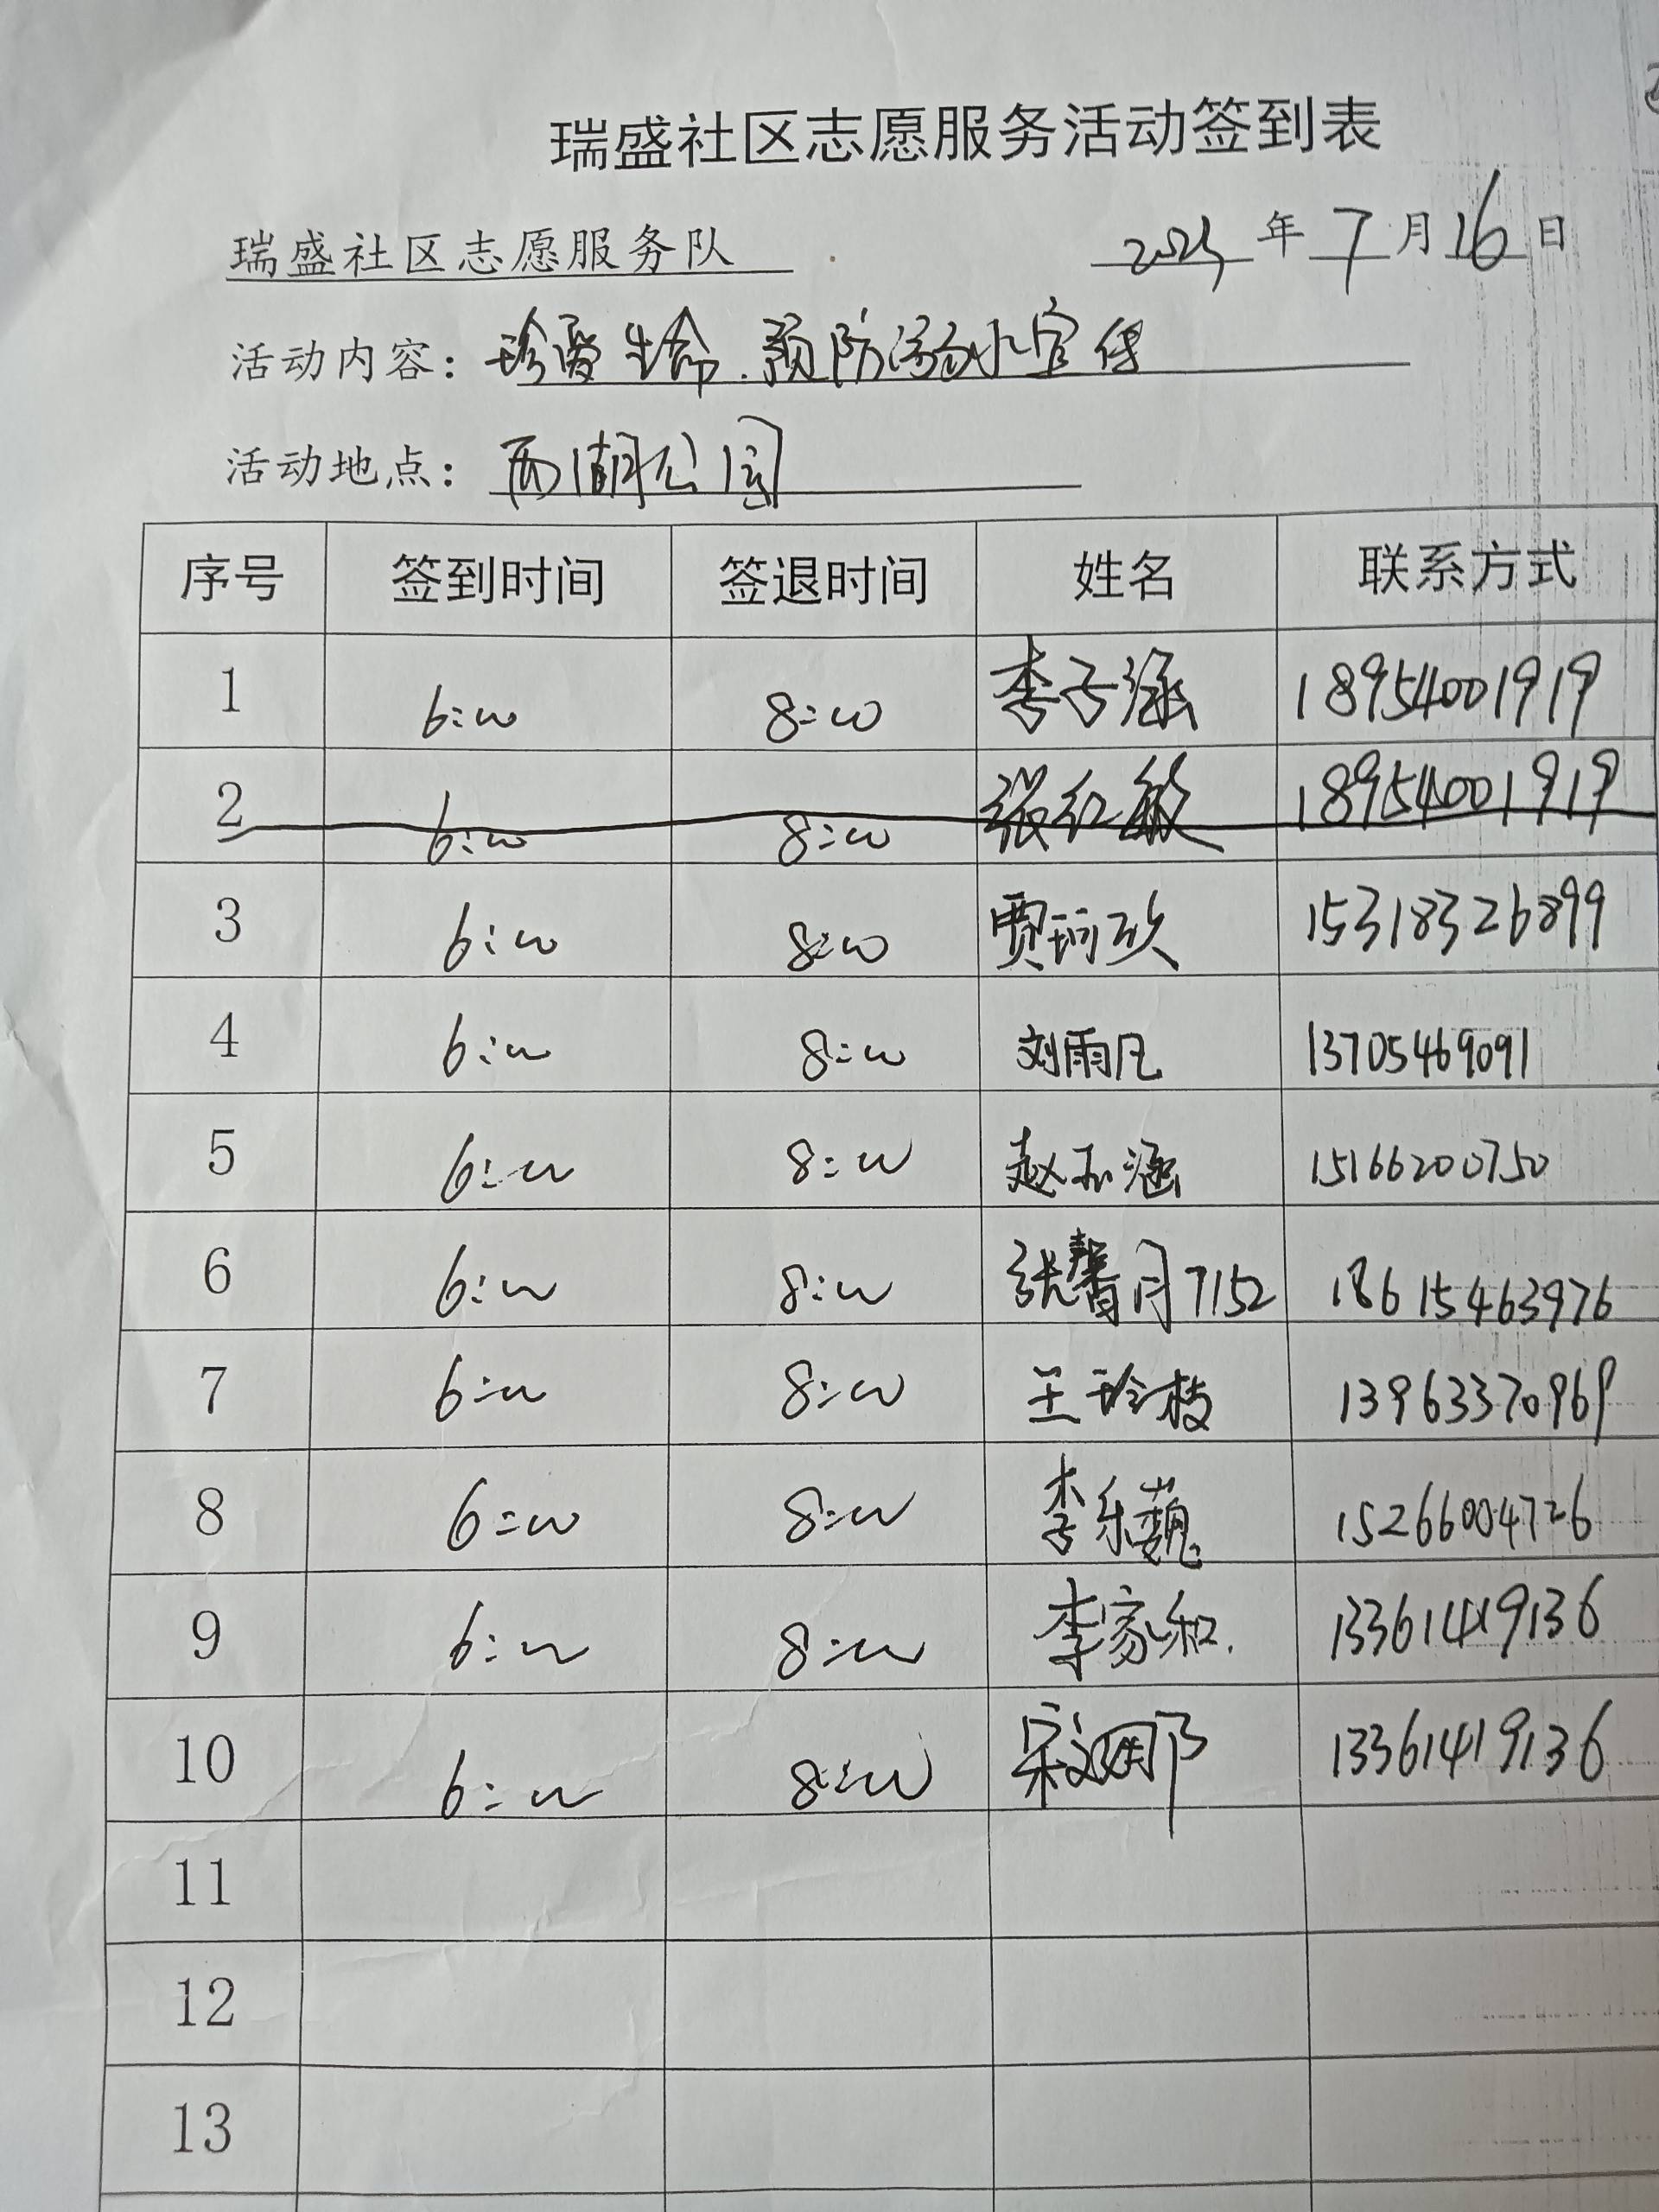 瑞盛社区志愿服务活动签到表
瑞盛社区志愿服务队 2025年7月16日
活动内容：珍爱生命.预防溺水宣传
活动地点：西湖公园
序号 签到时间 签退时间 姓名 联系方式
1 6:00 8:00 李子涵 18954001919
2 6:00 8:00 张红敏 18954001919
3 6:00 8:00 贾珂欣 15318326899
4 6:00 8:00 刘雨凡 13705469091
5 6:00 8:00 赵子涵 15166200750
6 6:00 8:00 张馨月7152 18615463976
7 6:00 8:00 王玲枝 13963370969
8 6:00 8:00 李乐巍 15266004726
9 6:00 8:00 李家和. 13361419136
10 6:00 8:00 宋文娜 13361419136
11
12
13